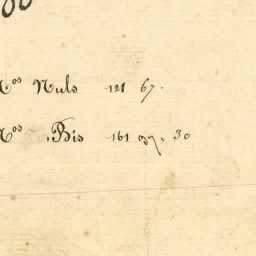 Nos Nuls 121 67.
Nos Bis 161 97. 30